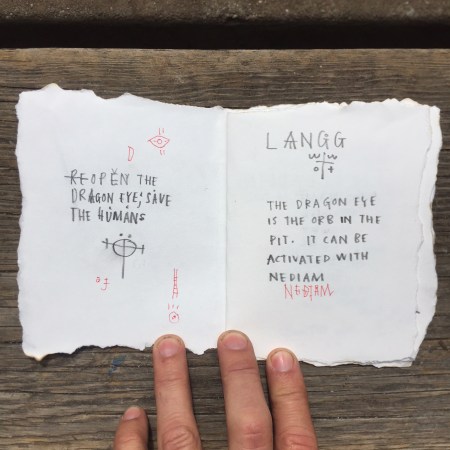 D
REOPEN THE
DRAGON EYE; SAVE
THE HUMANS
LANGG
THE DRAGON EYE
IS THE ORB IN THE
PIT. IT CAN BE
ACTIVATED WITH
NEDIAM